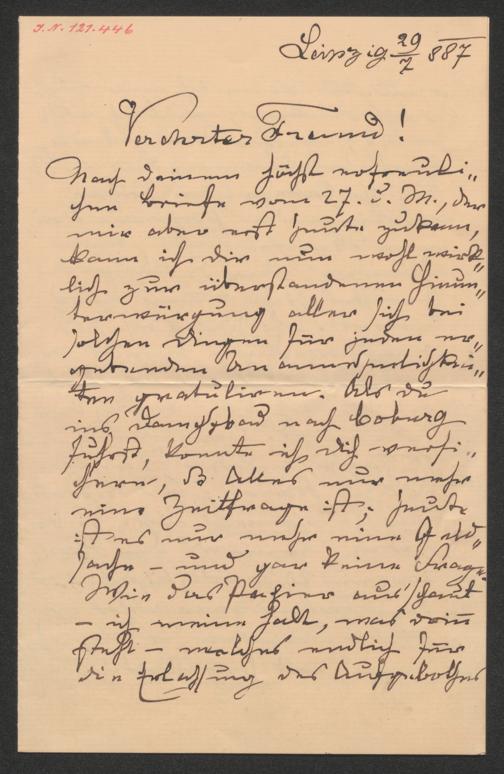 I.N. 121.446
Leipzig 29/7 887
Verehrter Freund!
Nach deinem höchst erfreuli„
chen Briefe vom 27. d. M., der
mir aber erst heute zukam,
kann ich dir nun wohl wirk„
lich zur überstandenen Hinun„
terwürgung aller sich bei
solchen Dingen für jeden er„
gebenden Unannehmlichkei„
ten gratuliren. Als du
ins Dampfbad nach Coburg
fuhrst, konnte ich dich versi„
chern, daß Alles nur mehr
eine Zeitfrage ist; heute
ist es nur mehr eine Geld„
sache – und gar keine Frage.
Wie das Papier ausschaut
– ich meine halt, was drin
steht – welches endlich für
die Erlassung des Aufgebothes